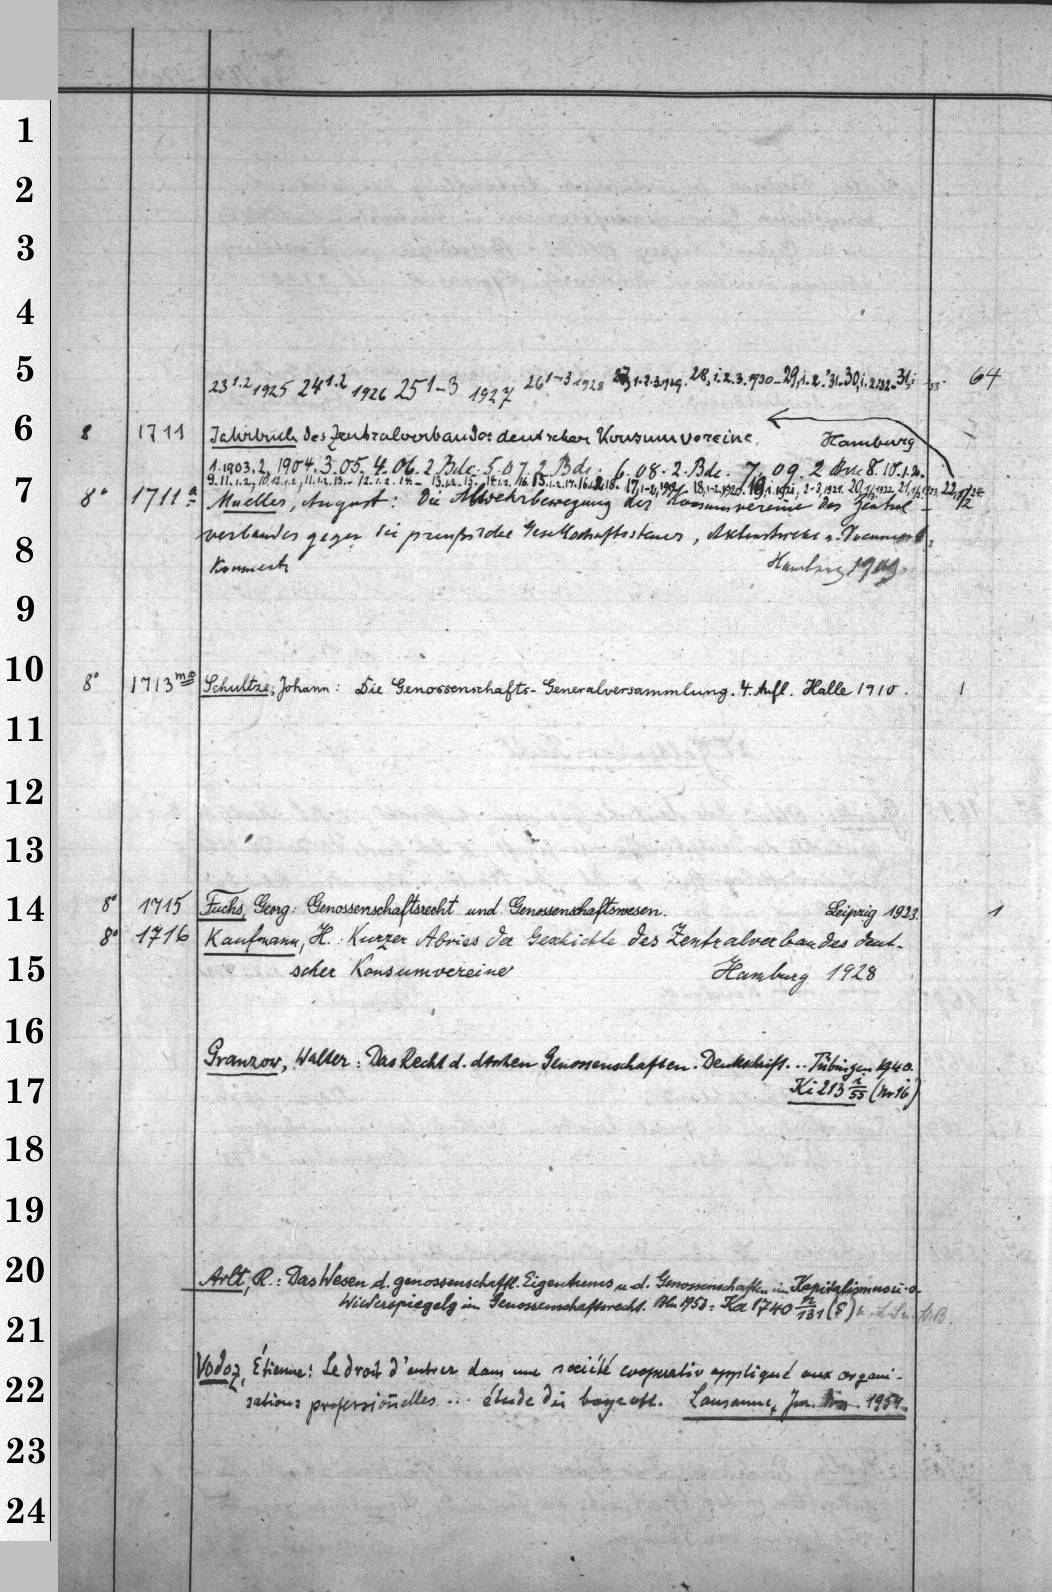 1
2
3
4
5
23 1.2 1925 24 1.2 1926 25 1-3 1927 26 1-3 1928 27, 1.2.3.1929. 28, 1.2.3. 1930 - 29, 1.2. '31. 30, 1.2.1932. 31, 1 64
6
8 1711 Jahrbuch des Zentralverbandes deutscher Konsumvereine. Hamburg
1.1903. 2. 1904. 3.05. 4.06. 2 Bde. 5.07. 2 Bde. 6.08. 2. Bde. 7.09. 2 Bde 8.10.1.2.
7
8° 1711 a Mueller, August: Die Abwehrbewegung der Konsumvereine des Zentral-
verbandes gegen die preußische Gesellschaftssteuer, Aktenstücke u.
8
Hamburg 1909.
9
10
8° 1713 Schultze, Johann: Die Genossenschafts-Generalversammlung. 4. Aufl. Halle 1910. 1
11
12
13
14
8° 1715 Fuchs, Georg: Genossenschaftsrecht und Genossenschaftswesen. Leipzig 1923. 1
8° 1716 Kaufmann, H.: Kurzer Abriss der Geschichte des Zentralverbandes deut-
15
scher Konsumvereine Hamburg 1928
16
Granzow, Walter: Das Recht d. dtschen Genossenschaften. Denkschrift... Tübingen 1940.
17
Ki 213 i/55 (Nr 16)
18
19
20
Arlt, R.: Das Wesen d. genossenschaftl. Eigentums u. d. Genossenschaften im Kapitalismus u. s.
Wiederspiegelg im Genossenschaftsrecht. Bln 1953: Ka 1740 n/131 (5)
21
Vodoz, Étienne: Le droit d'entrer dans une société coopérativ appliqué aux organi-
22
sations professionelles ... étude du boycott. Lausanne, Jur. Diss. 1954.
23
24